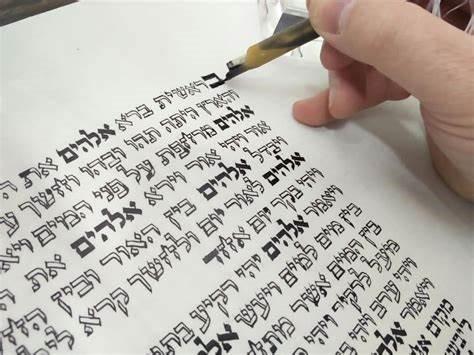 בראשית ברא אלהים את ה
והארץ היתה תהו ובהו וחשך ע
אלהים מרחפת על פני המים ויא
אור ויהי אור וירא אלהים את
ויבדל אלהים בין האור ובין
אלהים לאור יום ולחשך קרא
ויהי בקר יום אחד
ויאמר אלהים יהי רקיע בתו
בין מים למים ויעש
בין המים אשר מתח
מעל לרקיע ויהי
ויהי ערב ויהי
ויאמר
מקום